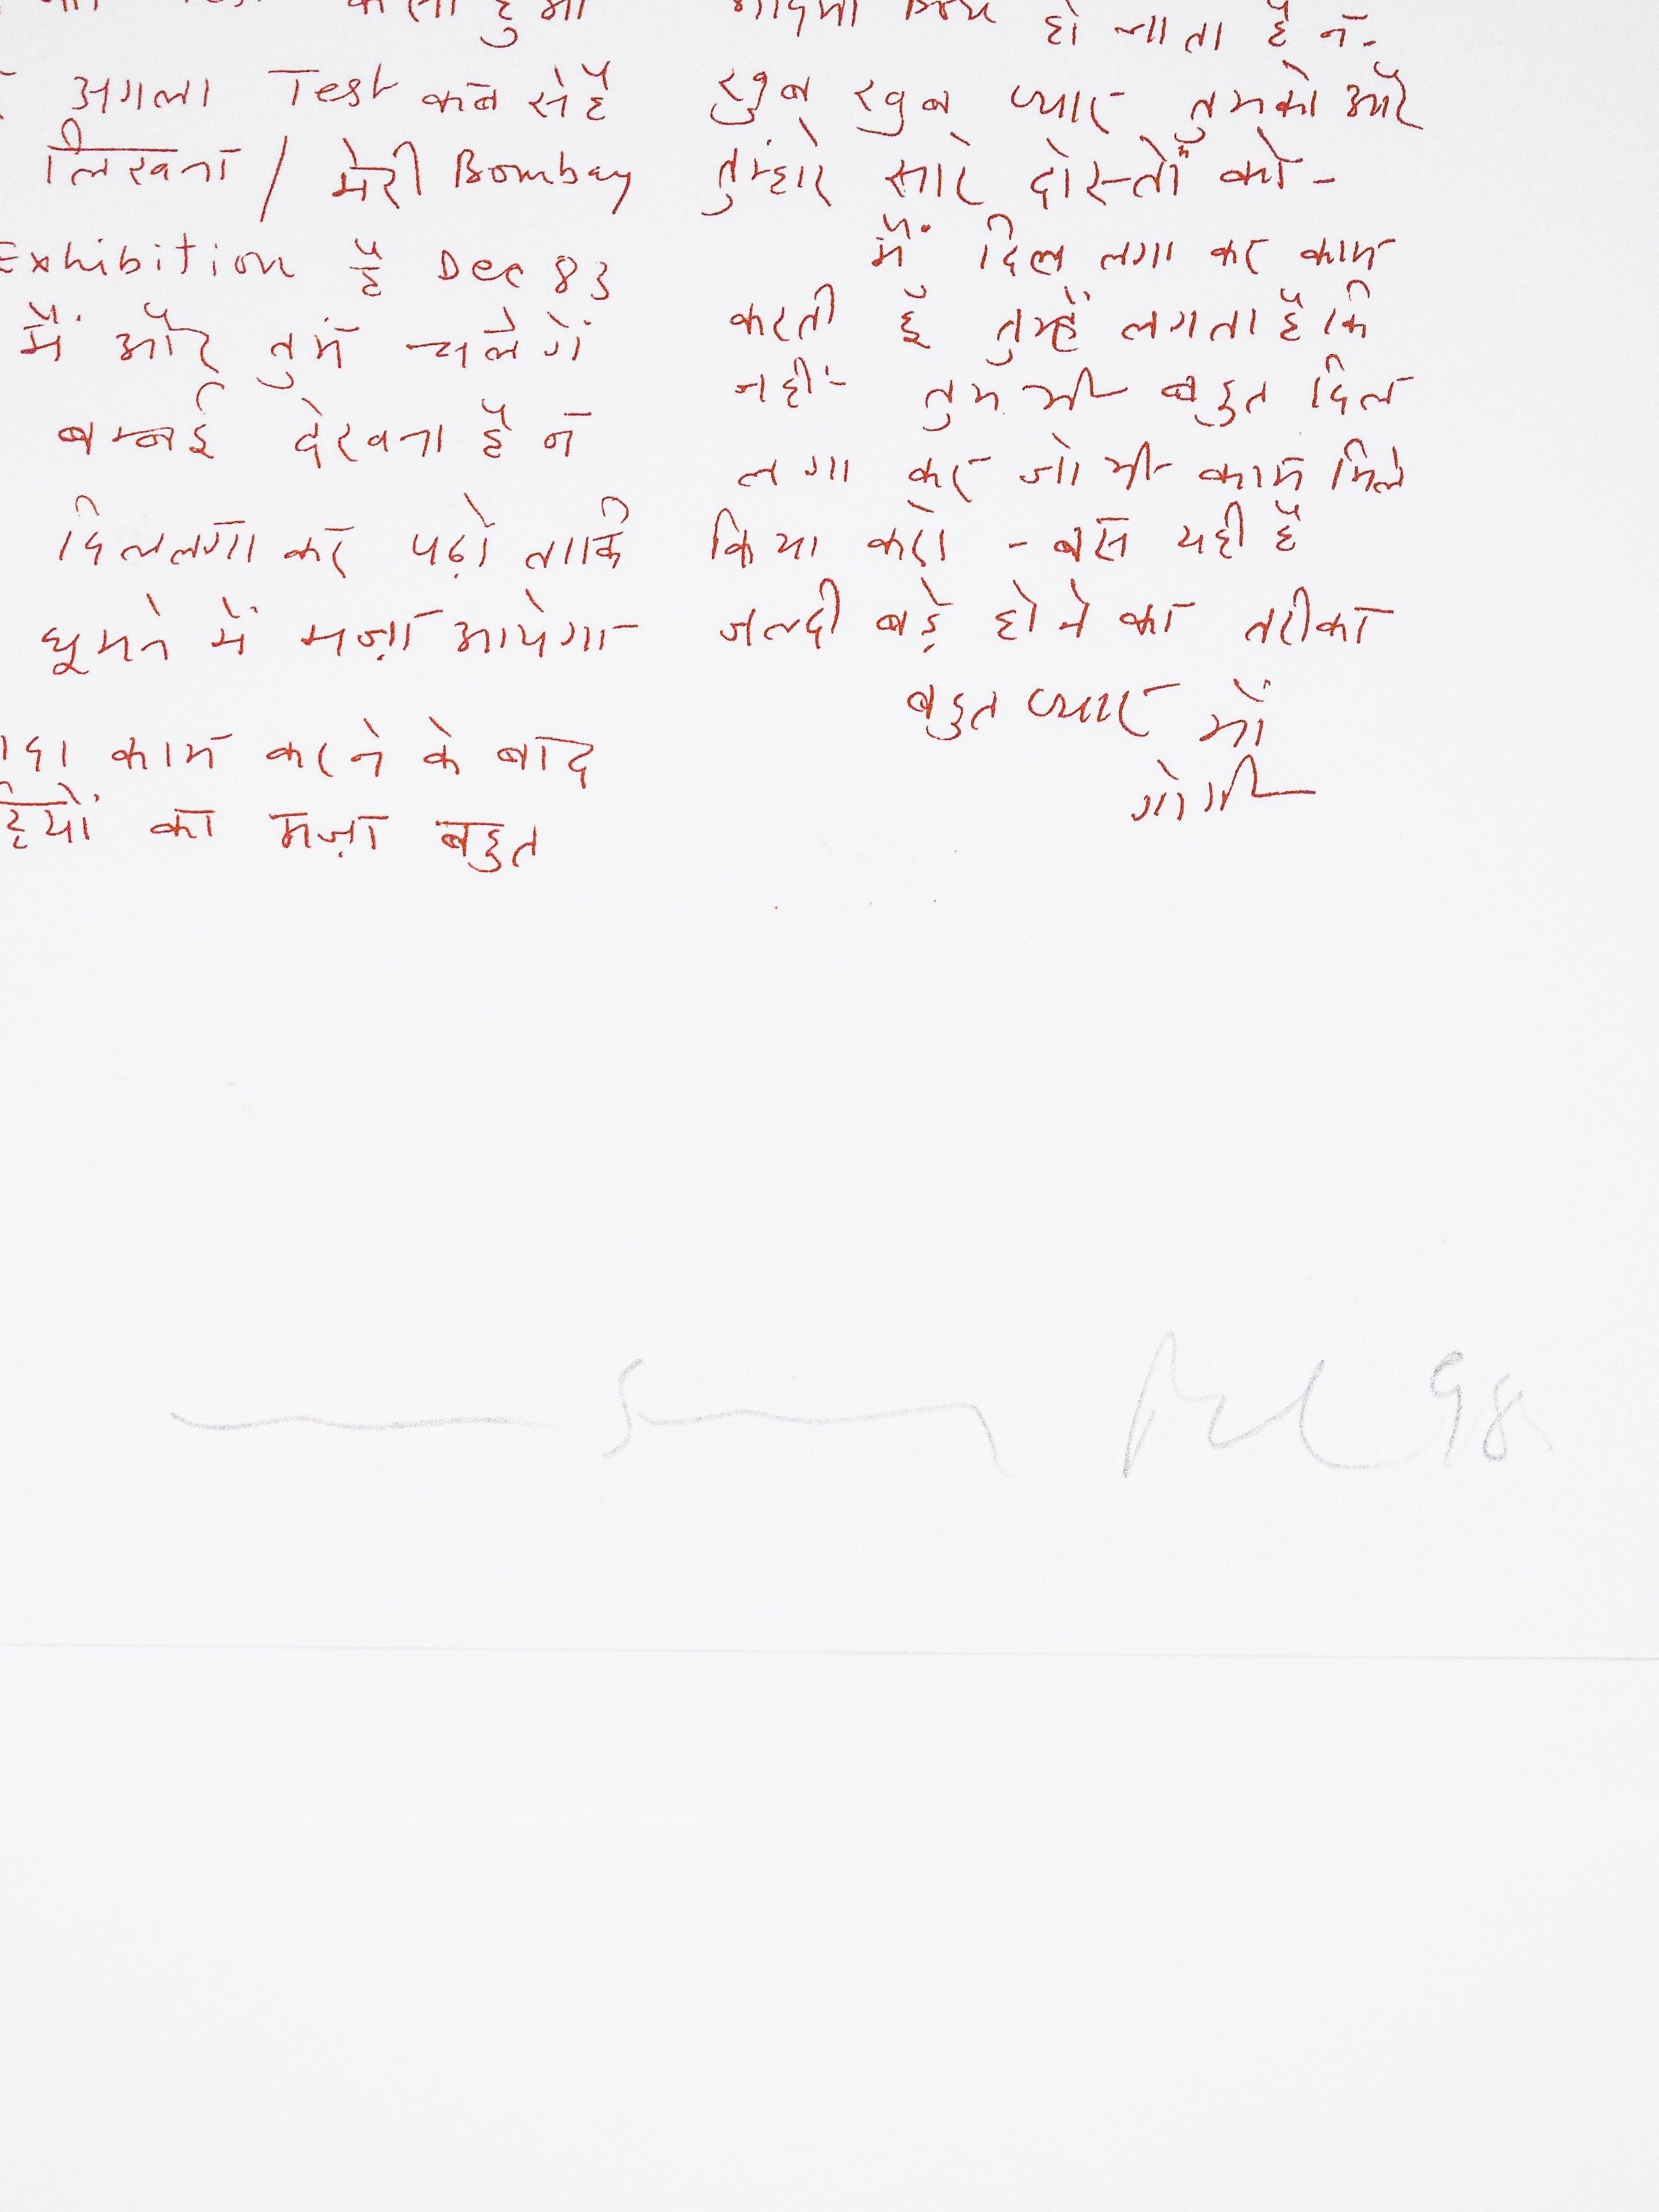 Test
अगला Test कब से है
लिखना / मेरी Bombay
Exhibition है Dec 83
मैं और तुम चलेगें
बम्बई देखना है न
दिल लगा कर पढ़ो ताकि
घूमने में मज़ा आयेगा
काम करने के बाद
का मज़ा बहुत
हो जाता है न -
खुब खुब प्यार तुमको और
तुम्हारे सारे दोस्तों को -
मैं दिल लगा कर काम
करती हूँ तुम्हें लगता है कि
नहीं - तुम भी बहुत दिल
लगा कर जो भी काम मिले
किया करो - बस यही है
जल्दी बड़े होने का तरीका
बहुत प्यार माँ
गोगी
98